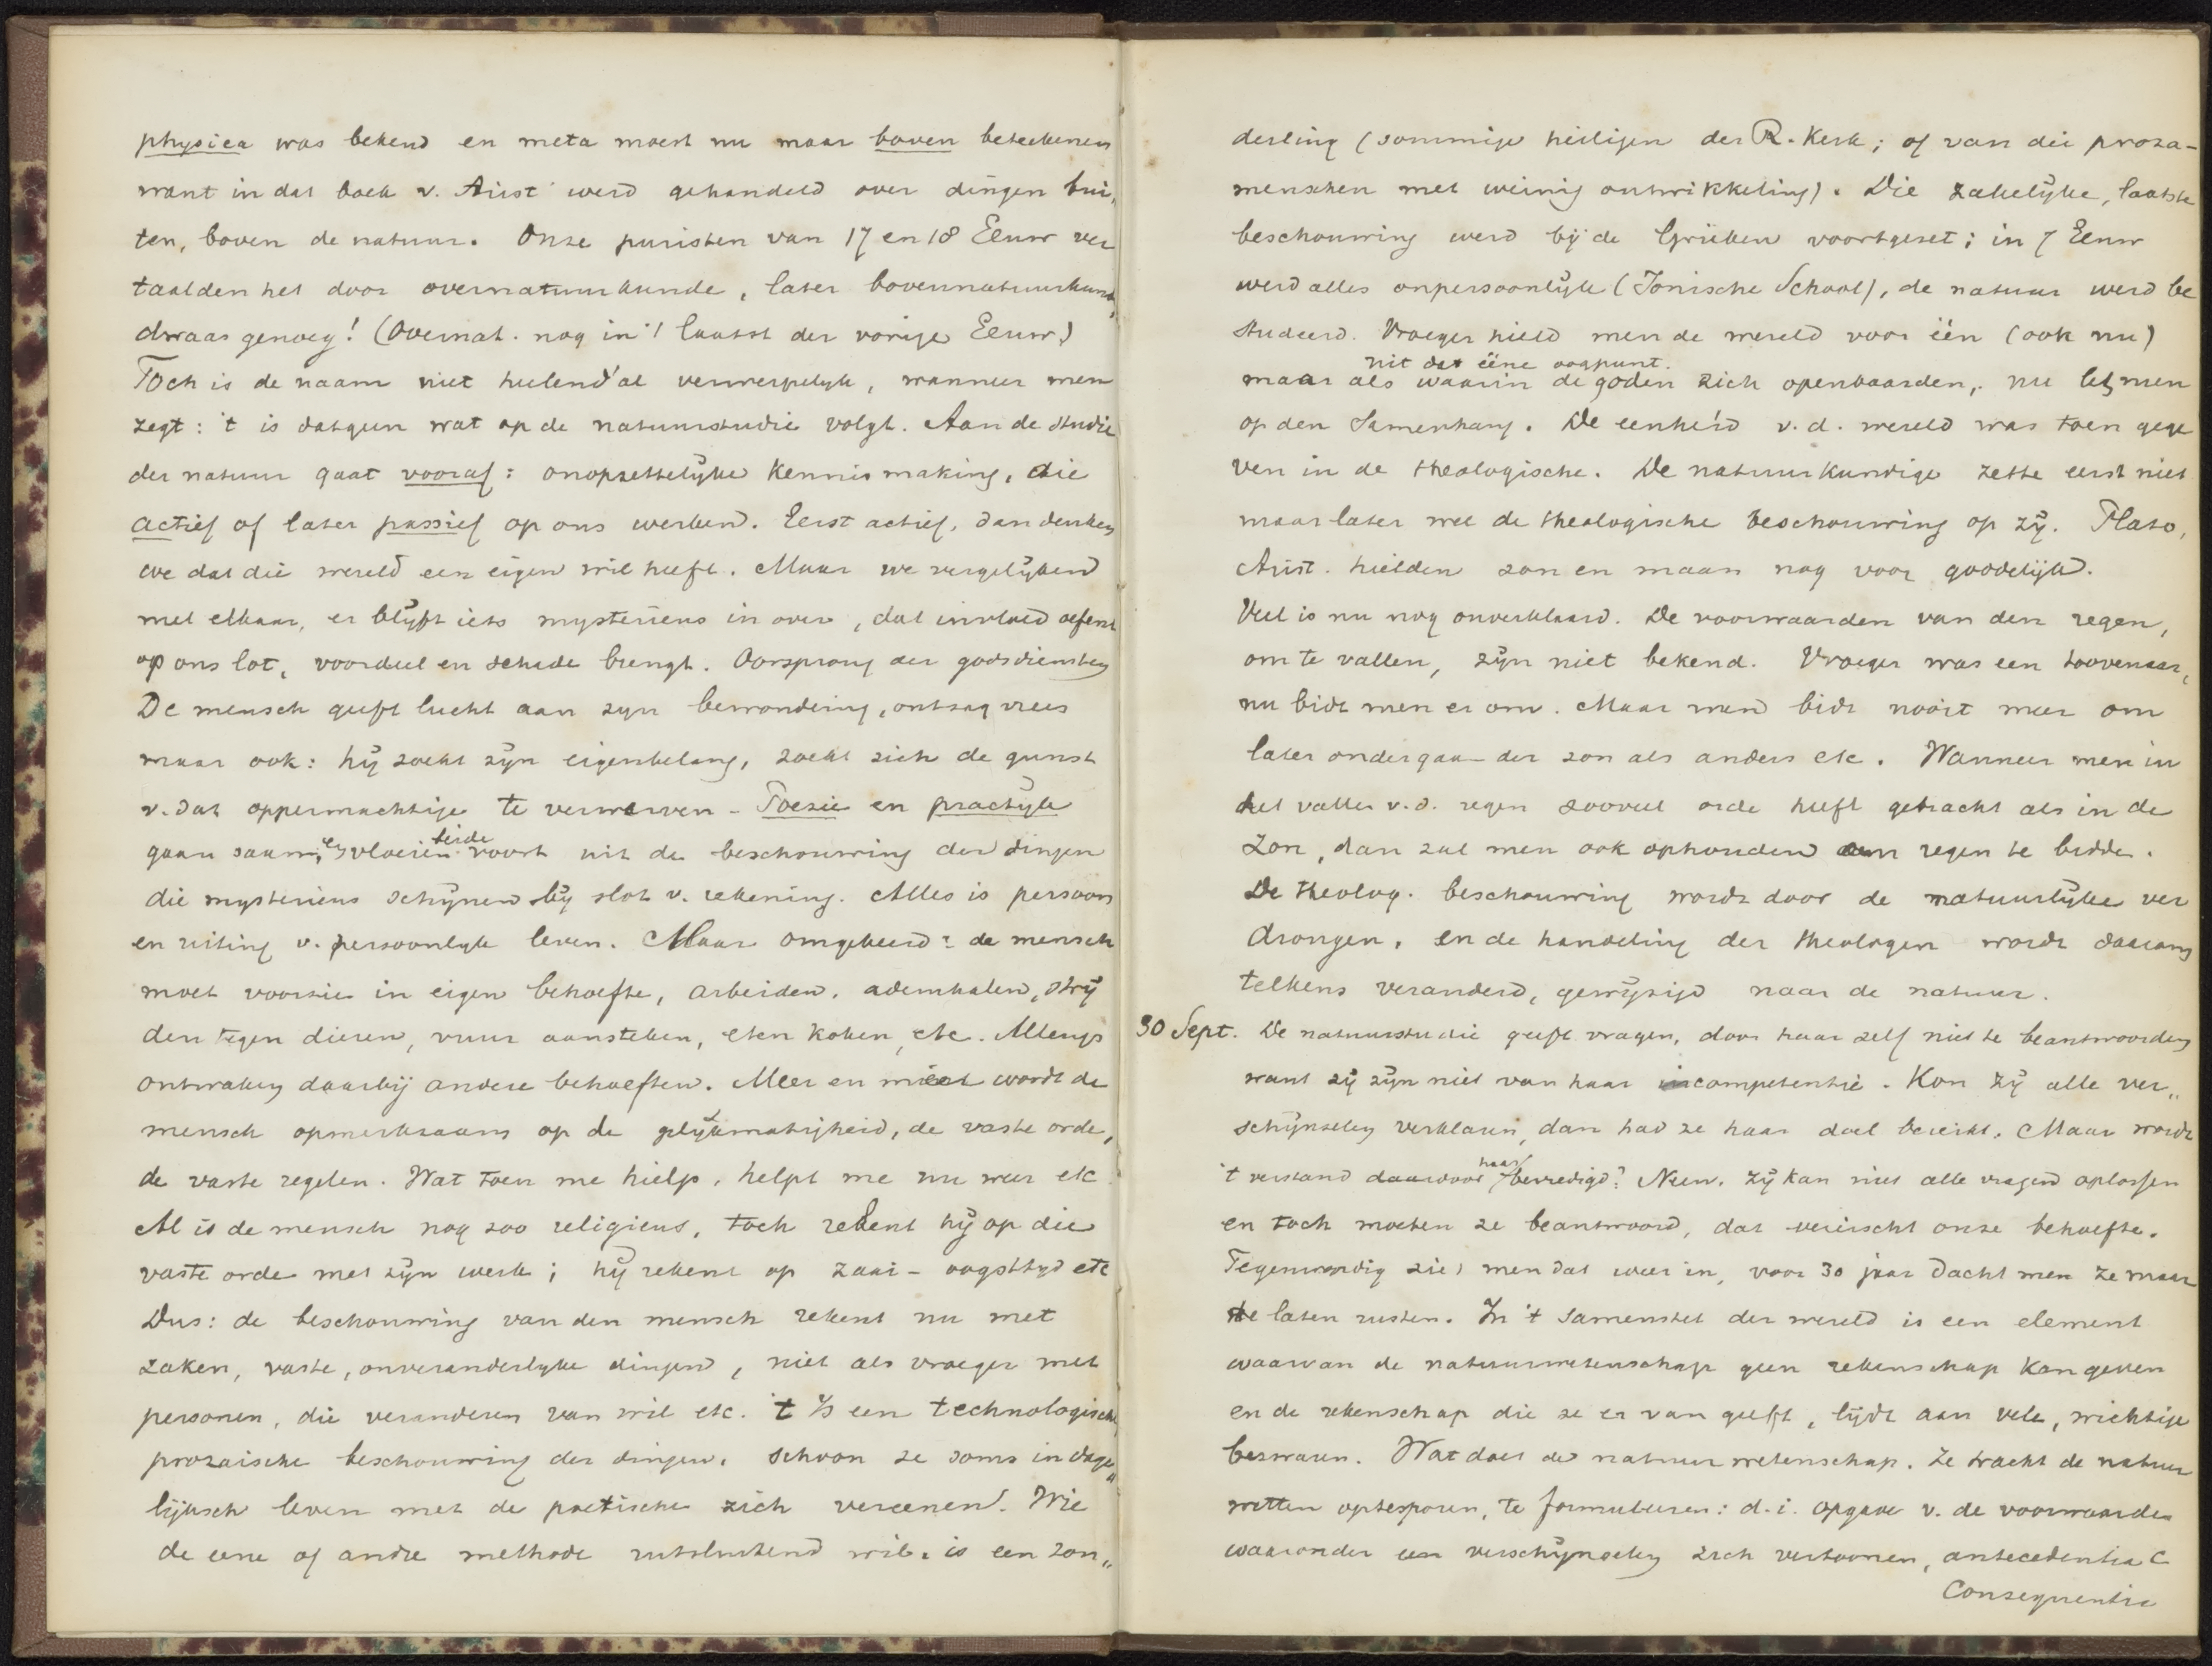 physica was bekend en meta moest nu maar boven beteekenen
want in dat boek v. Arist werd gehandeld over dingen bui„
ten, boven de natuur. Onze puristen van 17 en 18 Eeuw ver
taalden het door overnatuurkunde, later bovennatuurkund„
dwaas genoeg! (Overnat. nog in 't laatst der vorige Eeuw)
Toch is de naam niet heelend'al verwerpelyk, wanneer men
zegt: 't is datgeen wat op de natuurstudie volgt. Aan de studie
der natuur gaat vooraf: onopzettelyke Kennismaking, die
actief of later passief op ons werken. Eerst actief, dan denken
we dat die wereld een eigen wil heeft. Maar we vergelijken
met elkaar, er blijft iets mysterieus in over, dat invloed oefent
op ons lot, voordeel en schade brengt. Oorsprong der godsdiensten
De mensch geeft lucht aan zyn bewondering, ontzag vrees
maar ook: hij zoekt zijn eigenbelang, zoekt zich de gunst
v. dat oppermachtige te verwerven - Poezie en practyk
gaan saam, en vloeien beide voort uit de beschouwing der dingen
die mysterieus schijnen bij slot v. rekening. Alles is persoon
en uiting v. persoonlyk leven. Maar omgekeerd: de mensch
moet voorzien in eigen behoefte, arbeiden, ademhalen, strij
den tegen dieren, vuur aansteken, eten koken, etc. Allengs
ontwaken daarbij andere behoeften. Meer en meer wordt de
mensch opmerkzaam op de gelijkmatigheid, de vaste orde,
de vaste regelen. Wat toen me hielp, helpt me nu weer etc
Al is de mensch nog zoo religieus, toch rekent hij op die
vaste orde met zijn werk; hij rekent op zaai- oogsttyd etc
Dus: de beschouwing van den mensch rekent nu met
zaken, vaste, onveranderlyke dingen, niet als vroeger met
personen, die veranderen van wil etc. 't Is een technologische,
prozaische beschouwing der dingen, schoon ze soms in dage„
lijksch leven met de poetische zich vereenen. Wie
de eene of andre methode uitsluitend wil, is een zon„
derling (sommige heiligen der R. Kerk; of van die proza-
menschen met weinig ontwikkeling). Die zakelijke, laatste
beschouwing werd bij de Grieken voortgezet; in 7 Eeuw
werd alles onpersoonlijk (Ionische School), de natuur werd be
studeerd. Vroeger hield men de wereld voor één (ook nu)
uit dat ééne oogpunt.
maar als waarin de goden zich openbaarden, nu let men
op den Samenhang. De eenheid v. d. wereld was toen gege
ven in de theologische. De natuurkundige zette eerst niet
maar later wel de theologische beschouwing op zij. Plato,
Arist. hielden zon en maan nog voor goddelijk.
Veel is nu nog onverklaard. De voorwaarden van den regen,
om te vallen, zijn niet bekend. Vroeger was een toovenaar,
nu bidt men er om. Maar men bidt nooit meer om
later ondergaan der zon als anders etc. Wanneer men in
het vallen v.d. regen zooveel orde heeft gebracht als in de
Zon, dan zal men ook ophouden om regen te bidden.
De theolog. beschouwing wordt door de natuurlijke ver
drongen, en de handeling der theologen wordt daarom
telkens veranderd, gewijzigd naar de natuur.
30 Sept. De natuurstudie geeft vragen, door haar zelf niet te beantwoorden
want zij zijn niet van haar competentie. Kon zij alle ver„
schijnselen verklaren, dan had ze haar doel bereikt. Maar wordt
't verstand daardoor haar bevredigd? Neen. Zij kan niet alle vragen oplossen
en toch moeten ze beantwoord, dat vereischt onze behoefte.
Tegenwoordig ziet men dat weer in, voor 30 jaar dacht men ze maar
te laten rusten. In 't samenstel der wereld is een element
waarvan de natuurwetenschap geen rekenschap kan geven
en de rekenschap die ze er van geeft, lijdt aan vele, wichtige
bezwaren. Wat doet de natuurwetenschap. Ze tracht de natuur
wetten optesporen, te formuleeren: d.i. opgave v. de voorwaarden
waaronder een verschijnselen zich vertoonen, antecedentia C
Consequentia